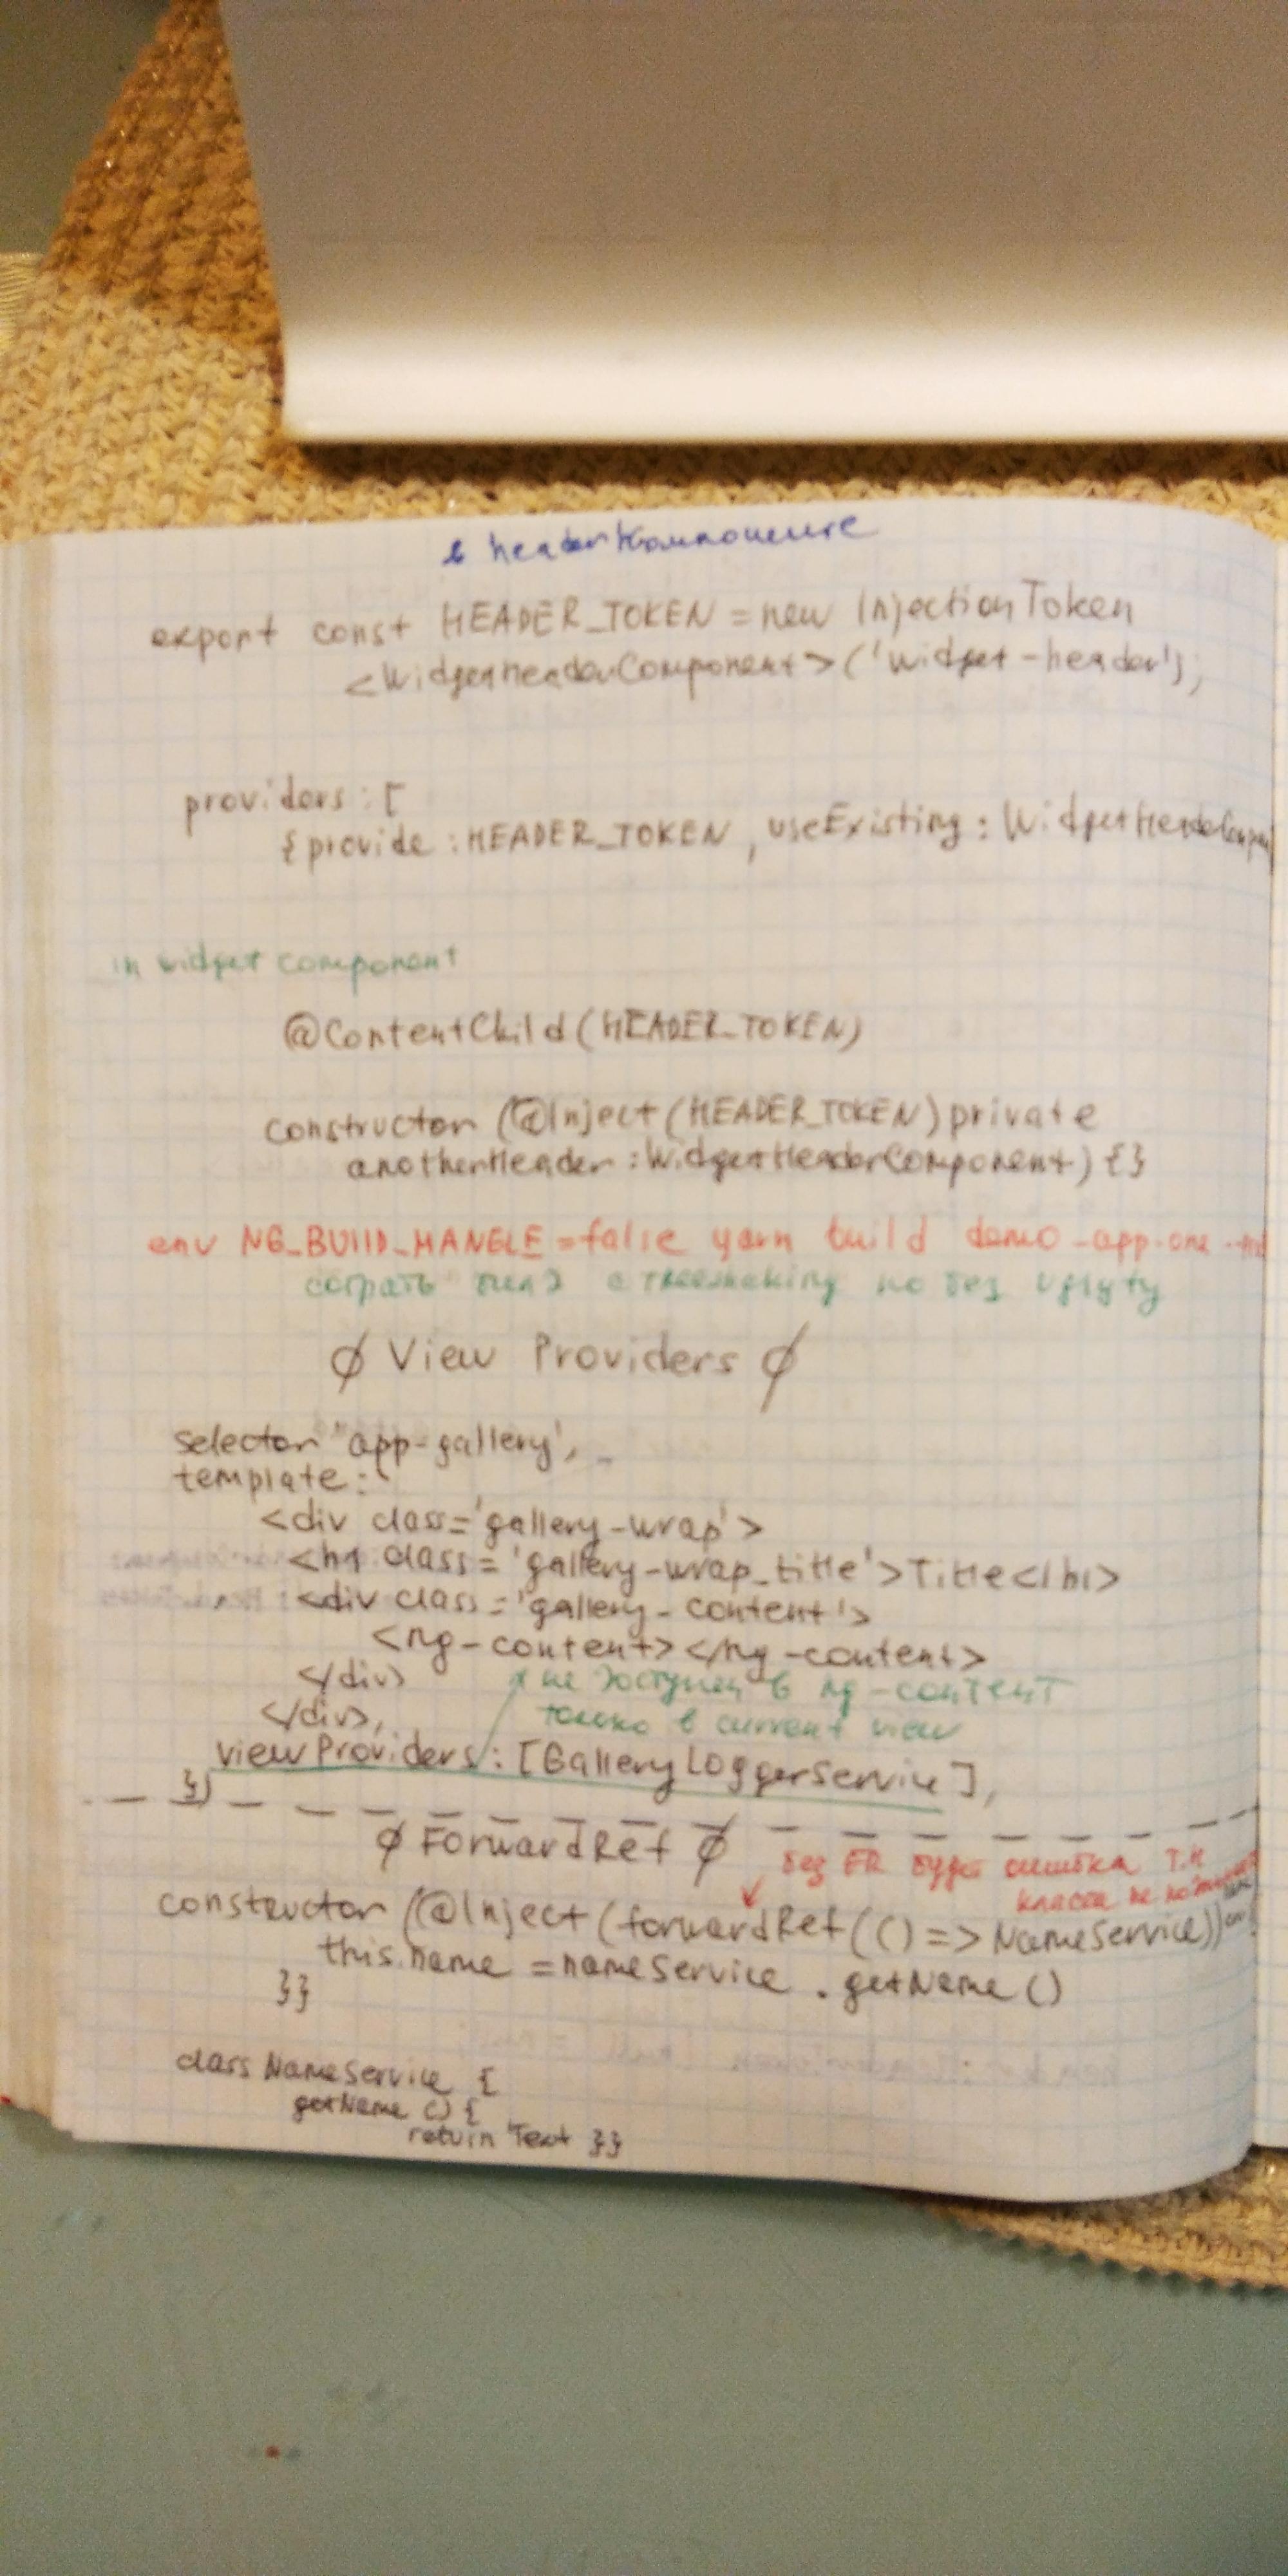 в headerкомпоненте
export const HEADER_TOKEN = new InjectionToken
<WidgetHeaderComponent>('widget-header');
providers: [
{ provide : HEADER_TOKEN , useExisting : WidgetHeaderCompon
in widget component
@ContentChild (HEADER_TOKEN)
constructor (@Inject (HEADER_TOKEN) private
anotherHeader : WidgetHeaderComponent) {}
env NG_BUILD_MANGLE = false yarn build demo-app-one
собрать билд с treeshaking но без uglyfy
∅ View Providers ∅
selector 'app-gallery',
template: `
<div class='gallery-wrap'>
<h1 class='gallery-wrap_title'>Title</h1>
<div class='gallery-content'>
<ng-content></ng-content>
</div>
не доступен в ng-content
</div>,
только в current view
viewProviders : [GalleryLoggerService],
})
∅ ForwardRef ∅
без FR будет ошибка т.к
класса не
constructor (@Inject (forwardRef(() => NameService))
this.name = nameService . getName ()
}}
class NameService {
getName () {
return 'Text }}